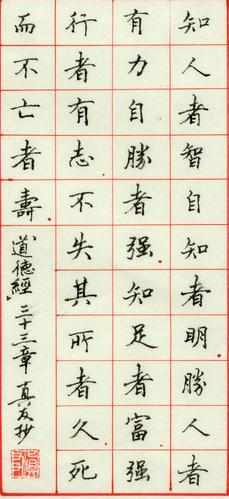 知人者智自知者明勝人者
有力自勝者强知足者富强
行者有志不失其所者久死
而不亡者壽
「道德經」三十三章 真友抄